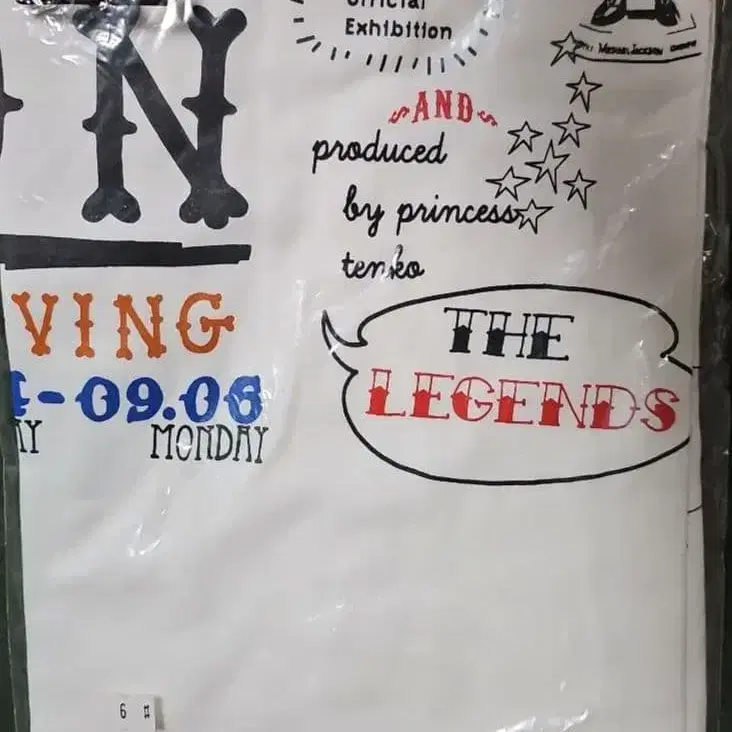 Official
Exhibition
N
AND
produced
by princess
tenko
VING
-09.06
AY MONDAY
THE
LEGENDS
6 #